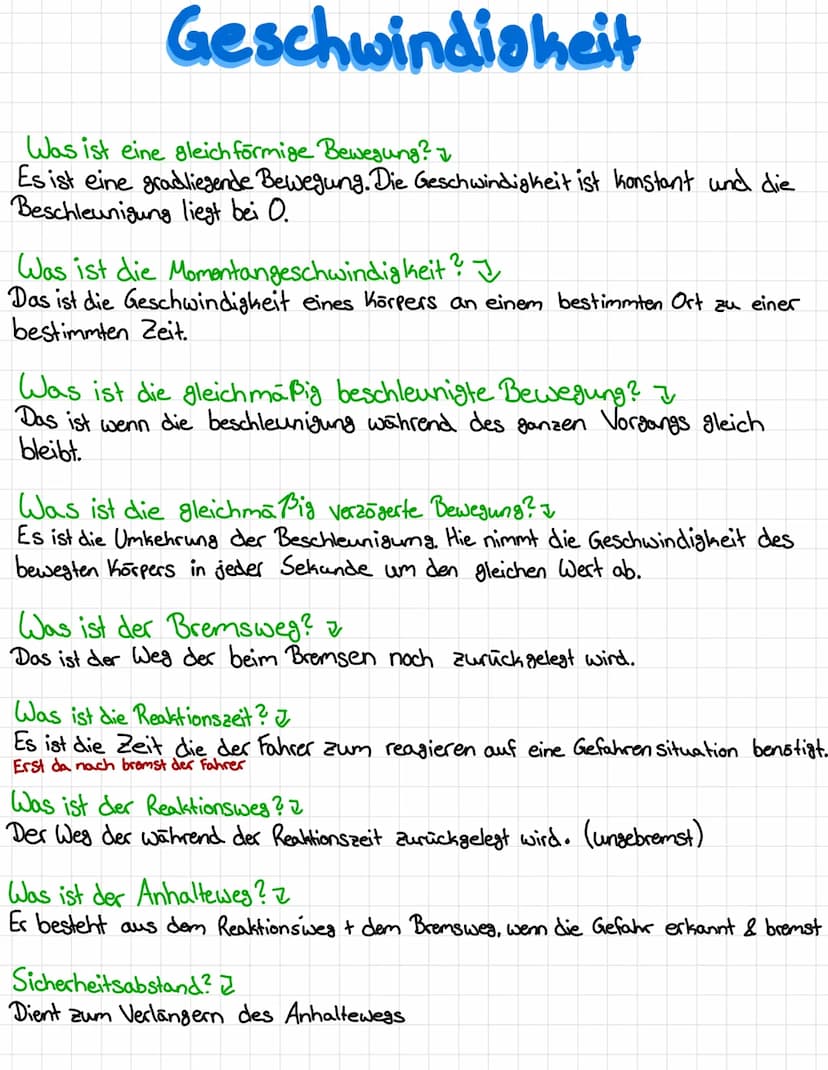 Geschwindigkeit
Was ist eine gleichförmige Bewegung?
Es ist eine gradliegende Bewegung. Die Geschwindigkeit ist konstant und die
Beschleunigung liegt bei 0.
Was ist die Momentangeschwindigkeit?
Das ist die Geschwindigkeit eines Körpers an einem bestimmten Ort zu einer
bestimmten Zeit.
Was ist die gleichmäßig beschleunigte Bewegung?
Das ist wenn die beschleunigung während des ganzen Vorgangs gleich
bleibt.
Was ist die gleichmäßig verzögerte Bewegung?
Es ist die Umkehrung der Beschleunigung. Hie nimmt die Geschwindigkeit des
bewegten Körpers in jeder Sekunde um den gleichen Wert ab.
Was ist der Bremsweg?
Das ist der Weg der beim Bremsen noch zurückgelegt wird.
Was ist die Reaktionszeit?
Es ist die Zeit die der Fahrer zum reagieren auf eine Gefahrensituation benötigt.
Erst da nach bremst der Fahrer
Was ist der Reaktionsweg?
Der Weg der während der Reaktionszeit zurückgelegt wird. (ungebremst)
Was ist der Anhalteweg?
Er besteht aus dem Reaktionsweg + dem Bremsweg, wenn die Gefahr erkannt & bremst
Sicherheitsabstand?
Dient zum Verlängern des Anhaltewegs